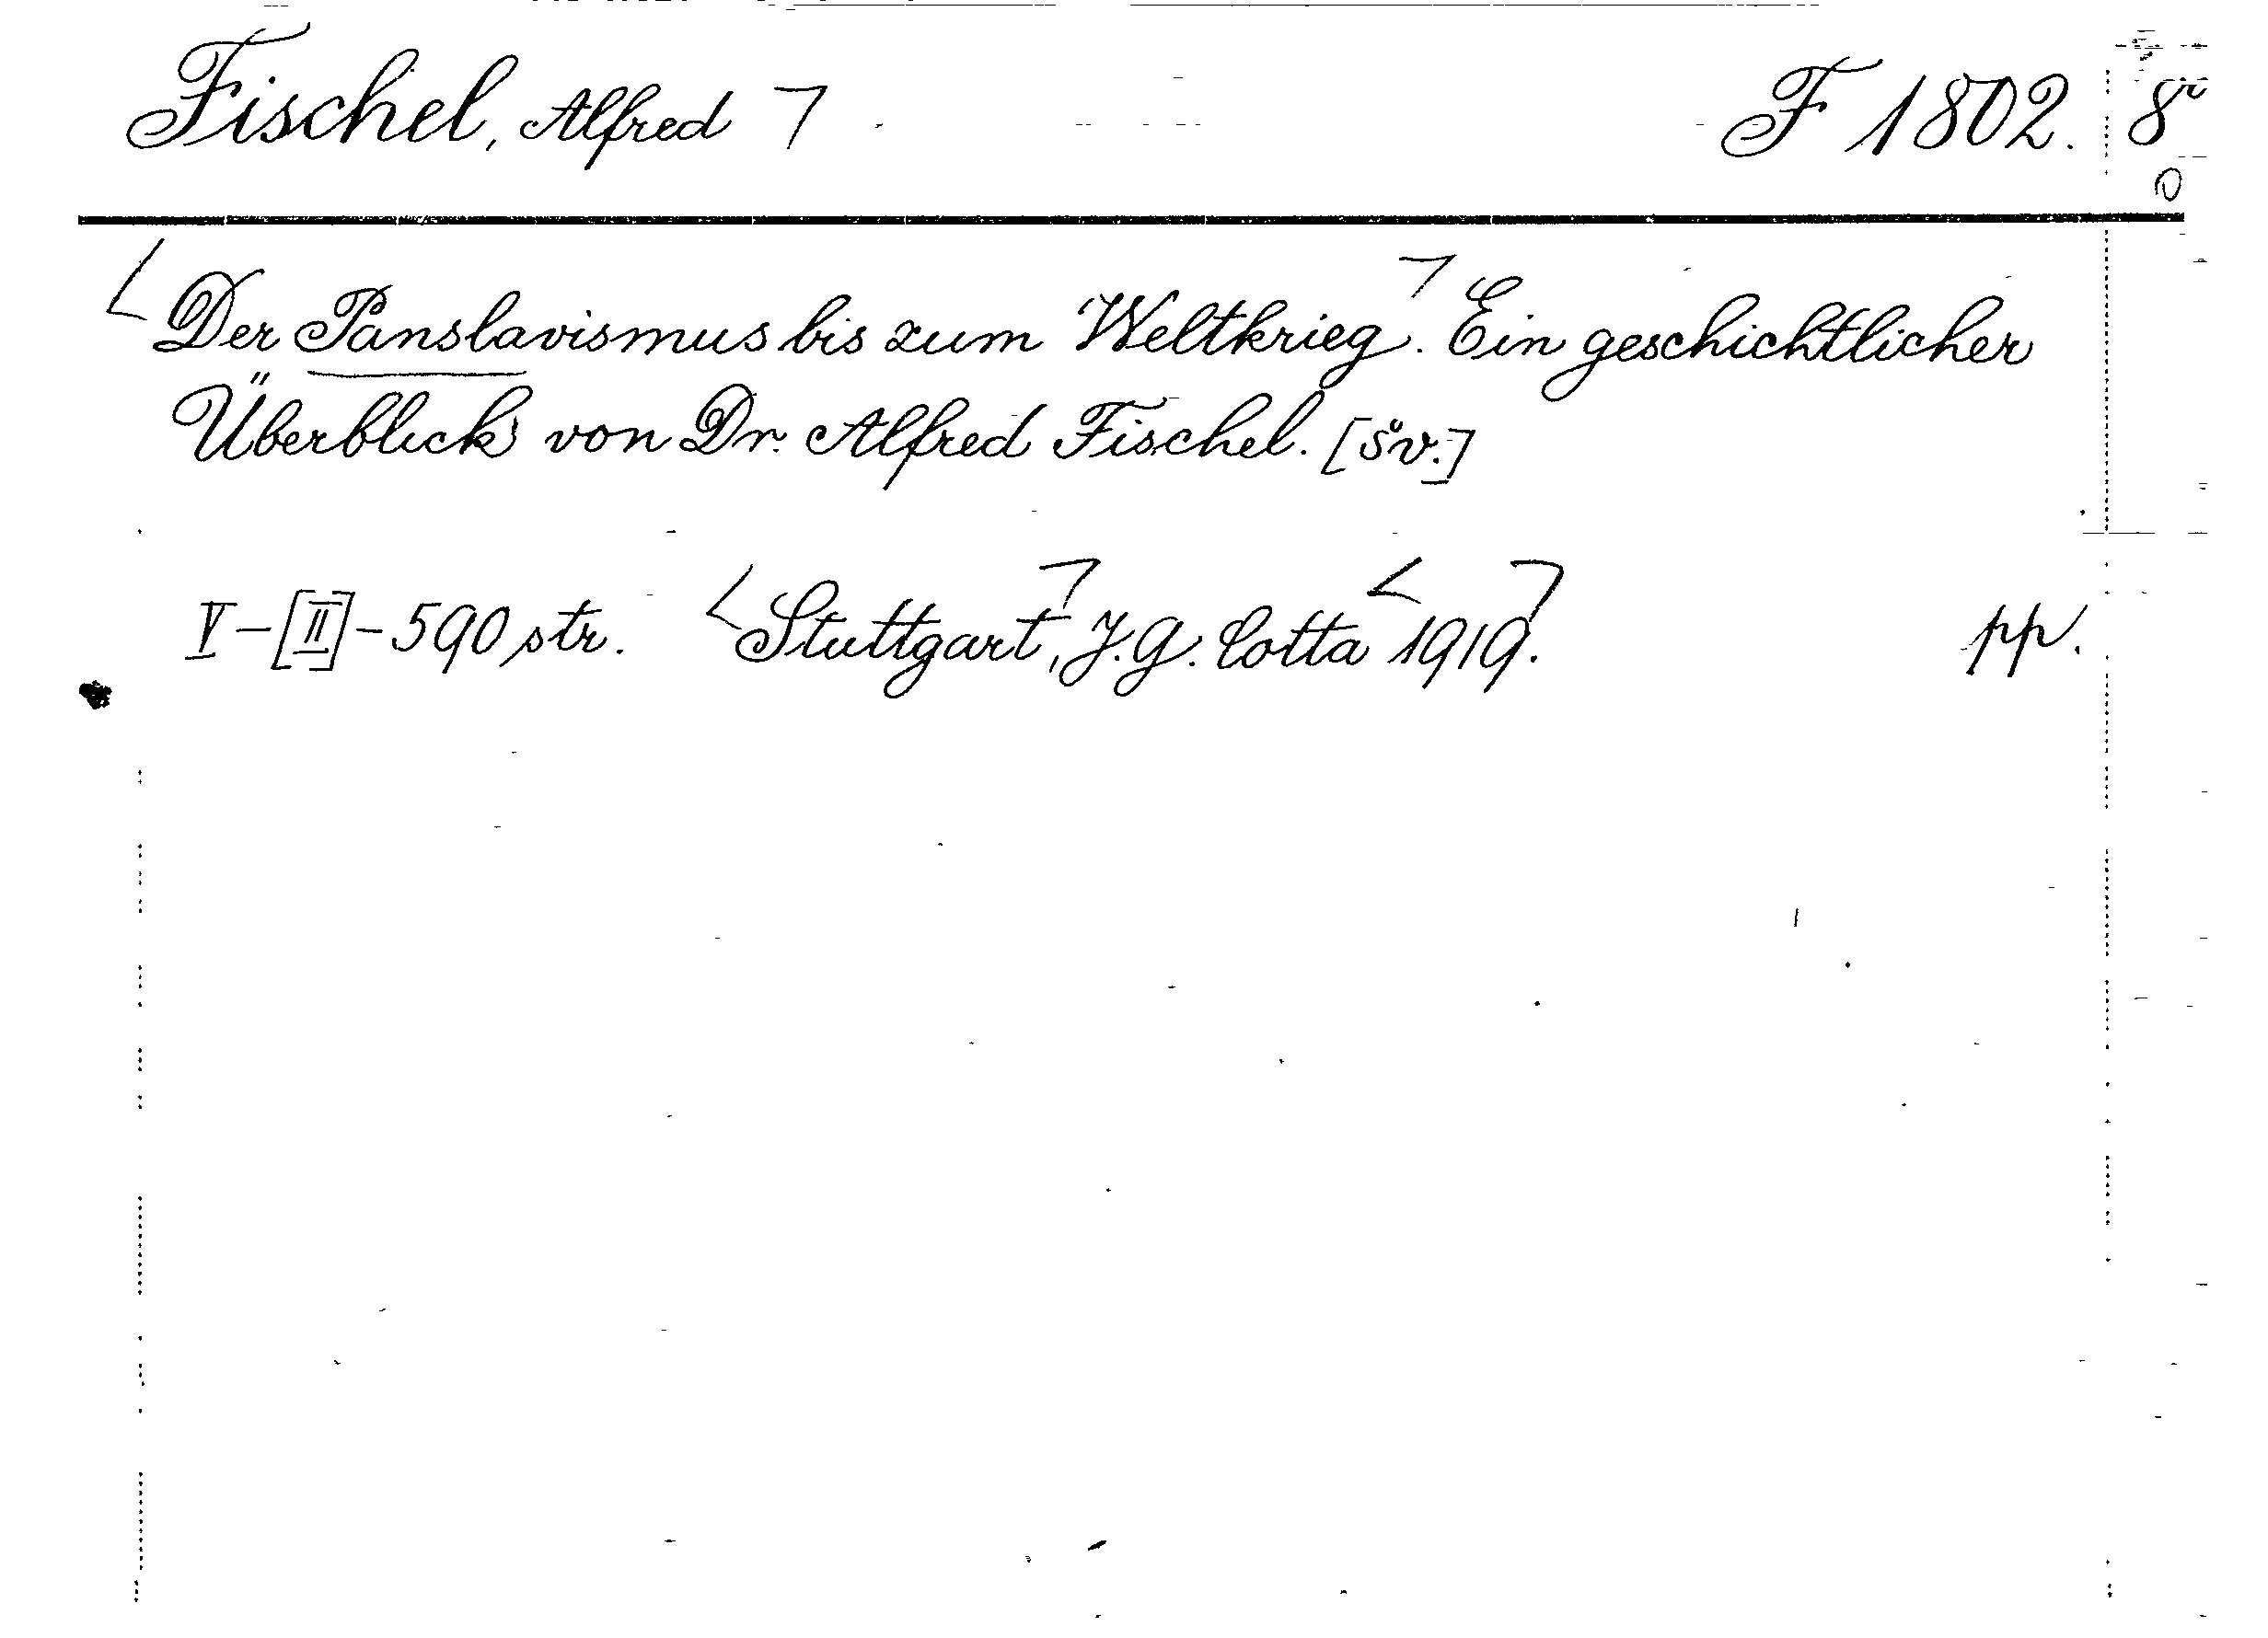 Fischel, Alfred F 1802. 8°
Der Panslavismus bis zum Weltkrieg. Ein geschichtlicher
Überblick von Dr. Alfred Fischel. [sv.]
V-[II]-590 str. Stuttgart, J. G. Cotta 1919. pp.